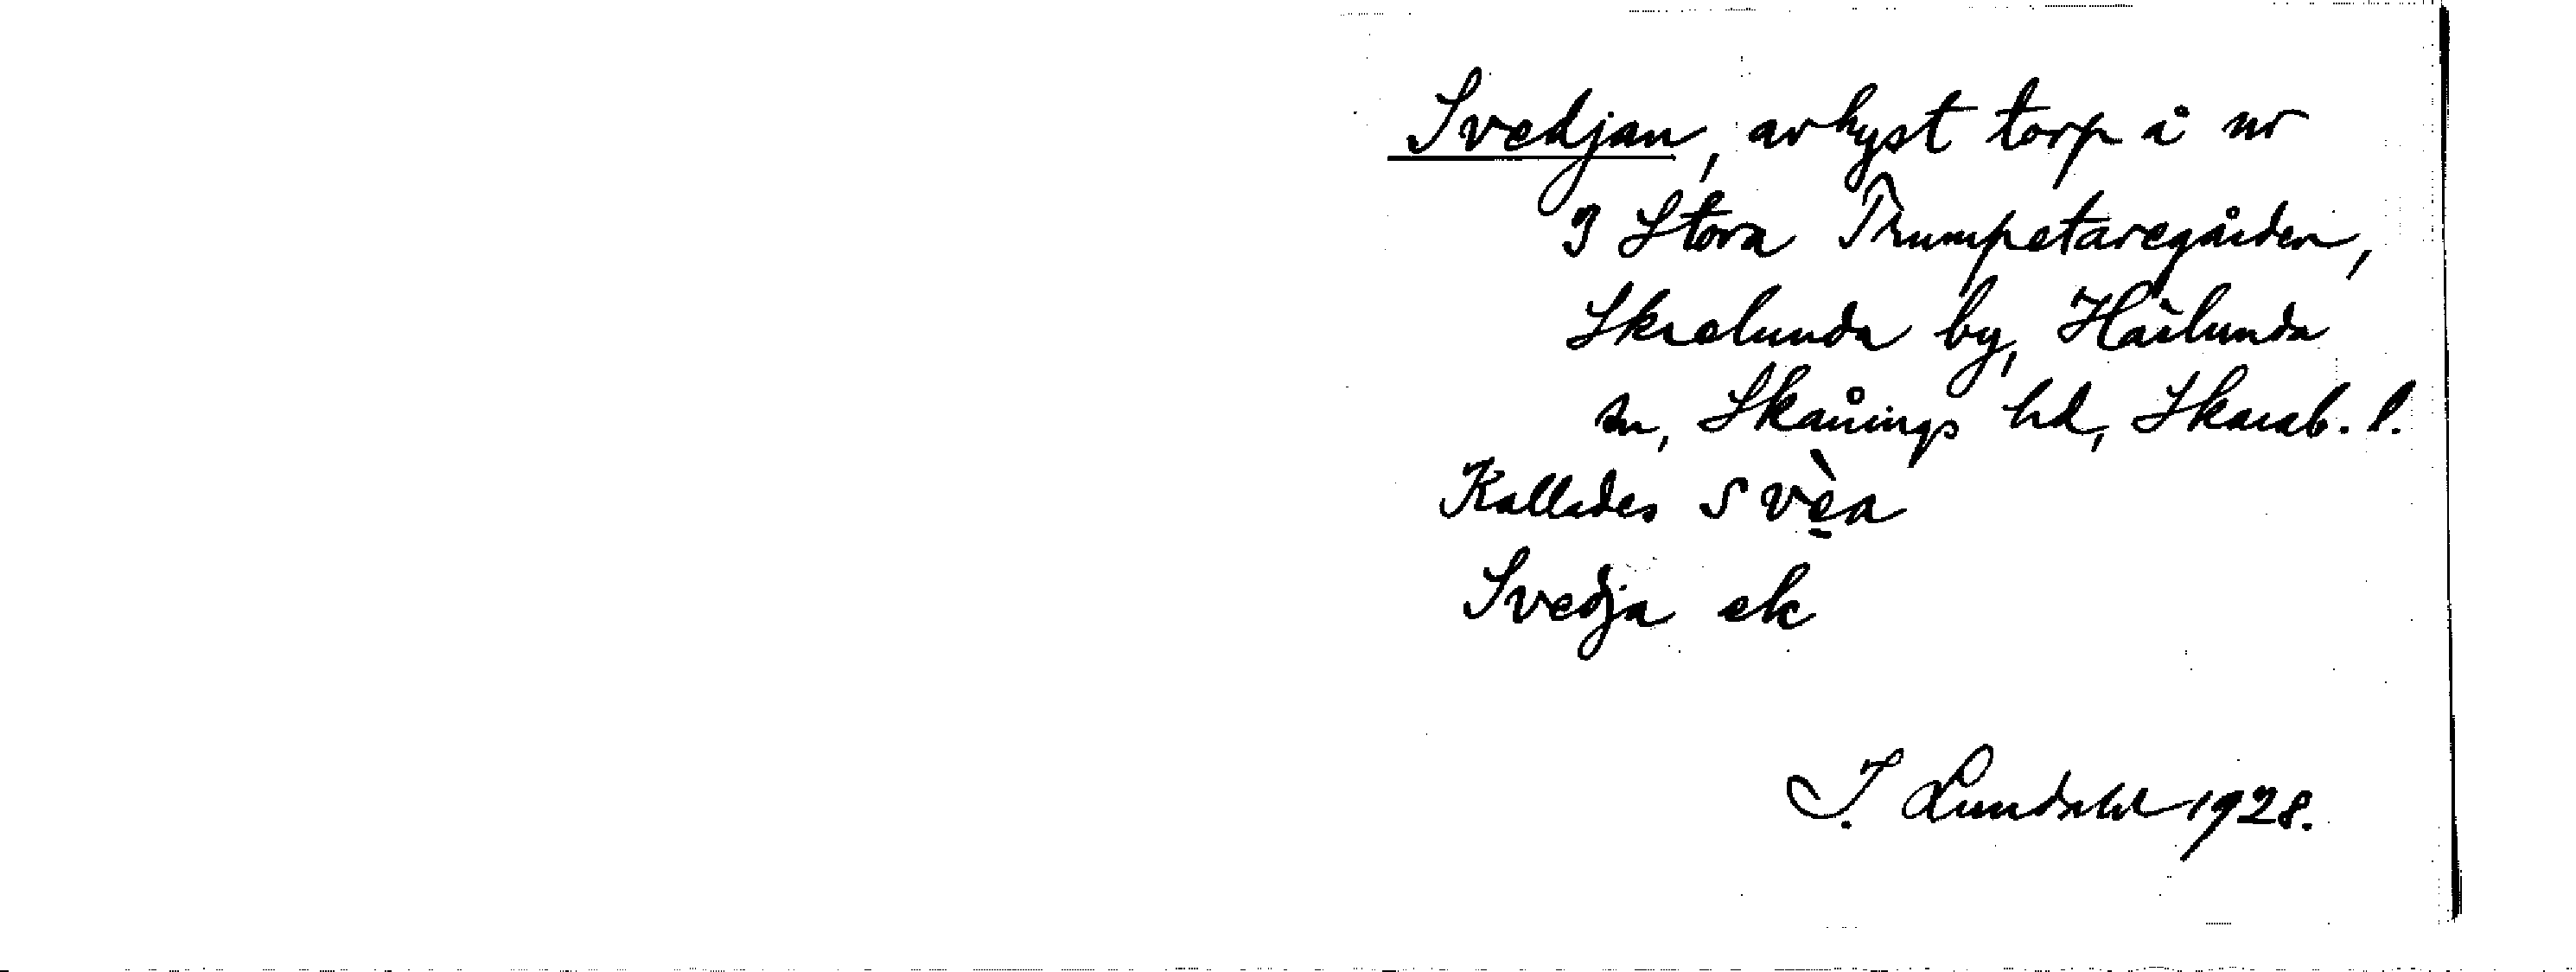 Svedjan, avhyst torp å nr
3 Stora Trumpetaregården,
Skrelunda by, Härlunda
sn, Skånings hd, Skarab. l.
Kallades svèa
Svedja ek
I. Lundahl 1928.